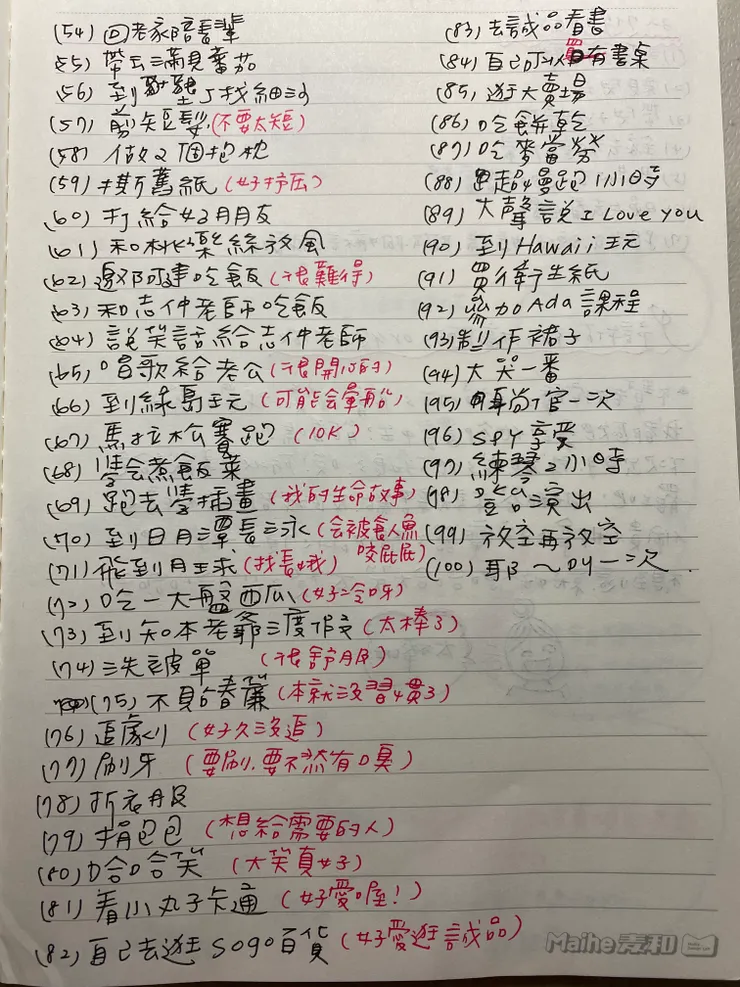 (54) 回老家陪長輩
(55) 帶玉滿見蕃茄
(56) 到墾丁找細沙
(57) 剪短髮 (不要太短)
(58) 做2個抱枕
(59) 撕舊紙 (好抒压)
(60) 打給好朋友
(61) 和林樂絲放風
(62) 邀阿建吃飯 (很難得)
(63) 和志仲老師吃飯
(64) 說笑話給志仲老師
(65) 唱歌給老公 (很開心的)
(66) 到綠島玩 (可能会暈船)
(67) 馬拉松賽跑 (10K)
(68) 學会煮飯菜
(69) 跑去學插畫 (我的生命故事)
(70) 到日月潭長泳 (会被食人魚咬屁屁)
(71) 飛到月球 (找長娥)
(72) 吃一大盤西瓜 (好冷呀)
(73) 到知本老爺三度假 (太棒了)
(74) 洗被單 (很舒服)
(75) 不買春簾 (本就沒習慣了)
(76) 追劇 (好久沒追)
(77) 刷牙 (要刷.要不然有口臭)
(78) 折衣服
(79) 揹包包 (想給需要的人)
(80) 哈哈笑 (大笑真好)
(81) 看小丸子卡通 (好愛喔!)
(82) 自己去逛 sogo百貨 (好愛逛誠品)
(83) 去誠品看書
(84) 自己可以有書桌
(85) 逛大賣場
(86) 吃餅乾
(87) 吃麥當勞
(88) 超慢跑1小時
(89) 大聲說 I Love you
(90) 到Hawaii玩
(91) 買衛生紙
(92) 參加Ada課程
(93) 製作裙子
(94) 大哭一番
(95) 當官一次
(96) SPY享受
(97) 練琴2小時
(98) 登台演出
(99) 放空再放空
(100) 耶~叫一次.
Maihe麦和